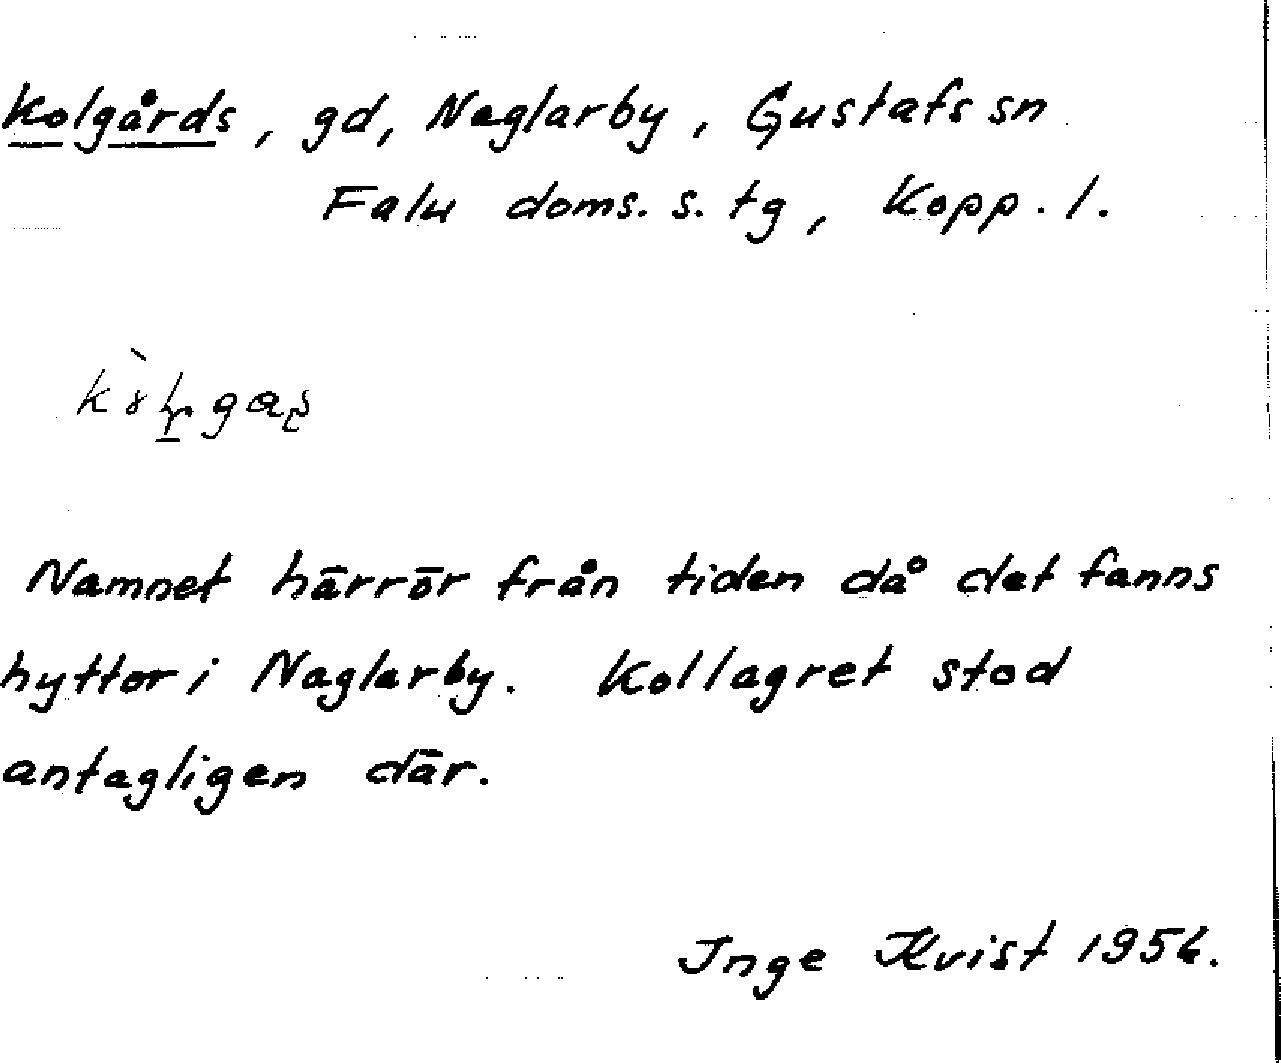 Kolgårds, gd, Naglarby, Gustafs sn
Falu doms. s. tg, Kopp. l.
Namnet härrör från tiden då det fanns
hyttor i Naglarby. Kollagret stod
antagligen där.
Inge Kvist